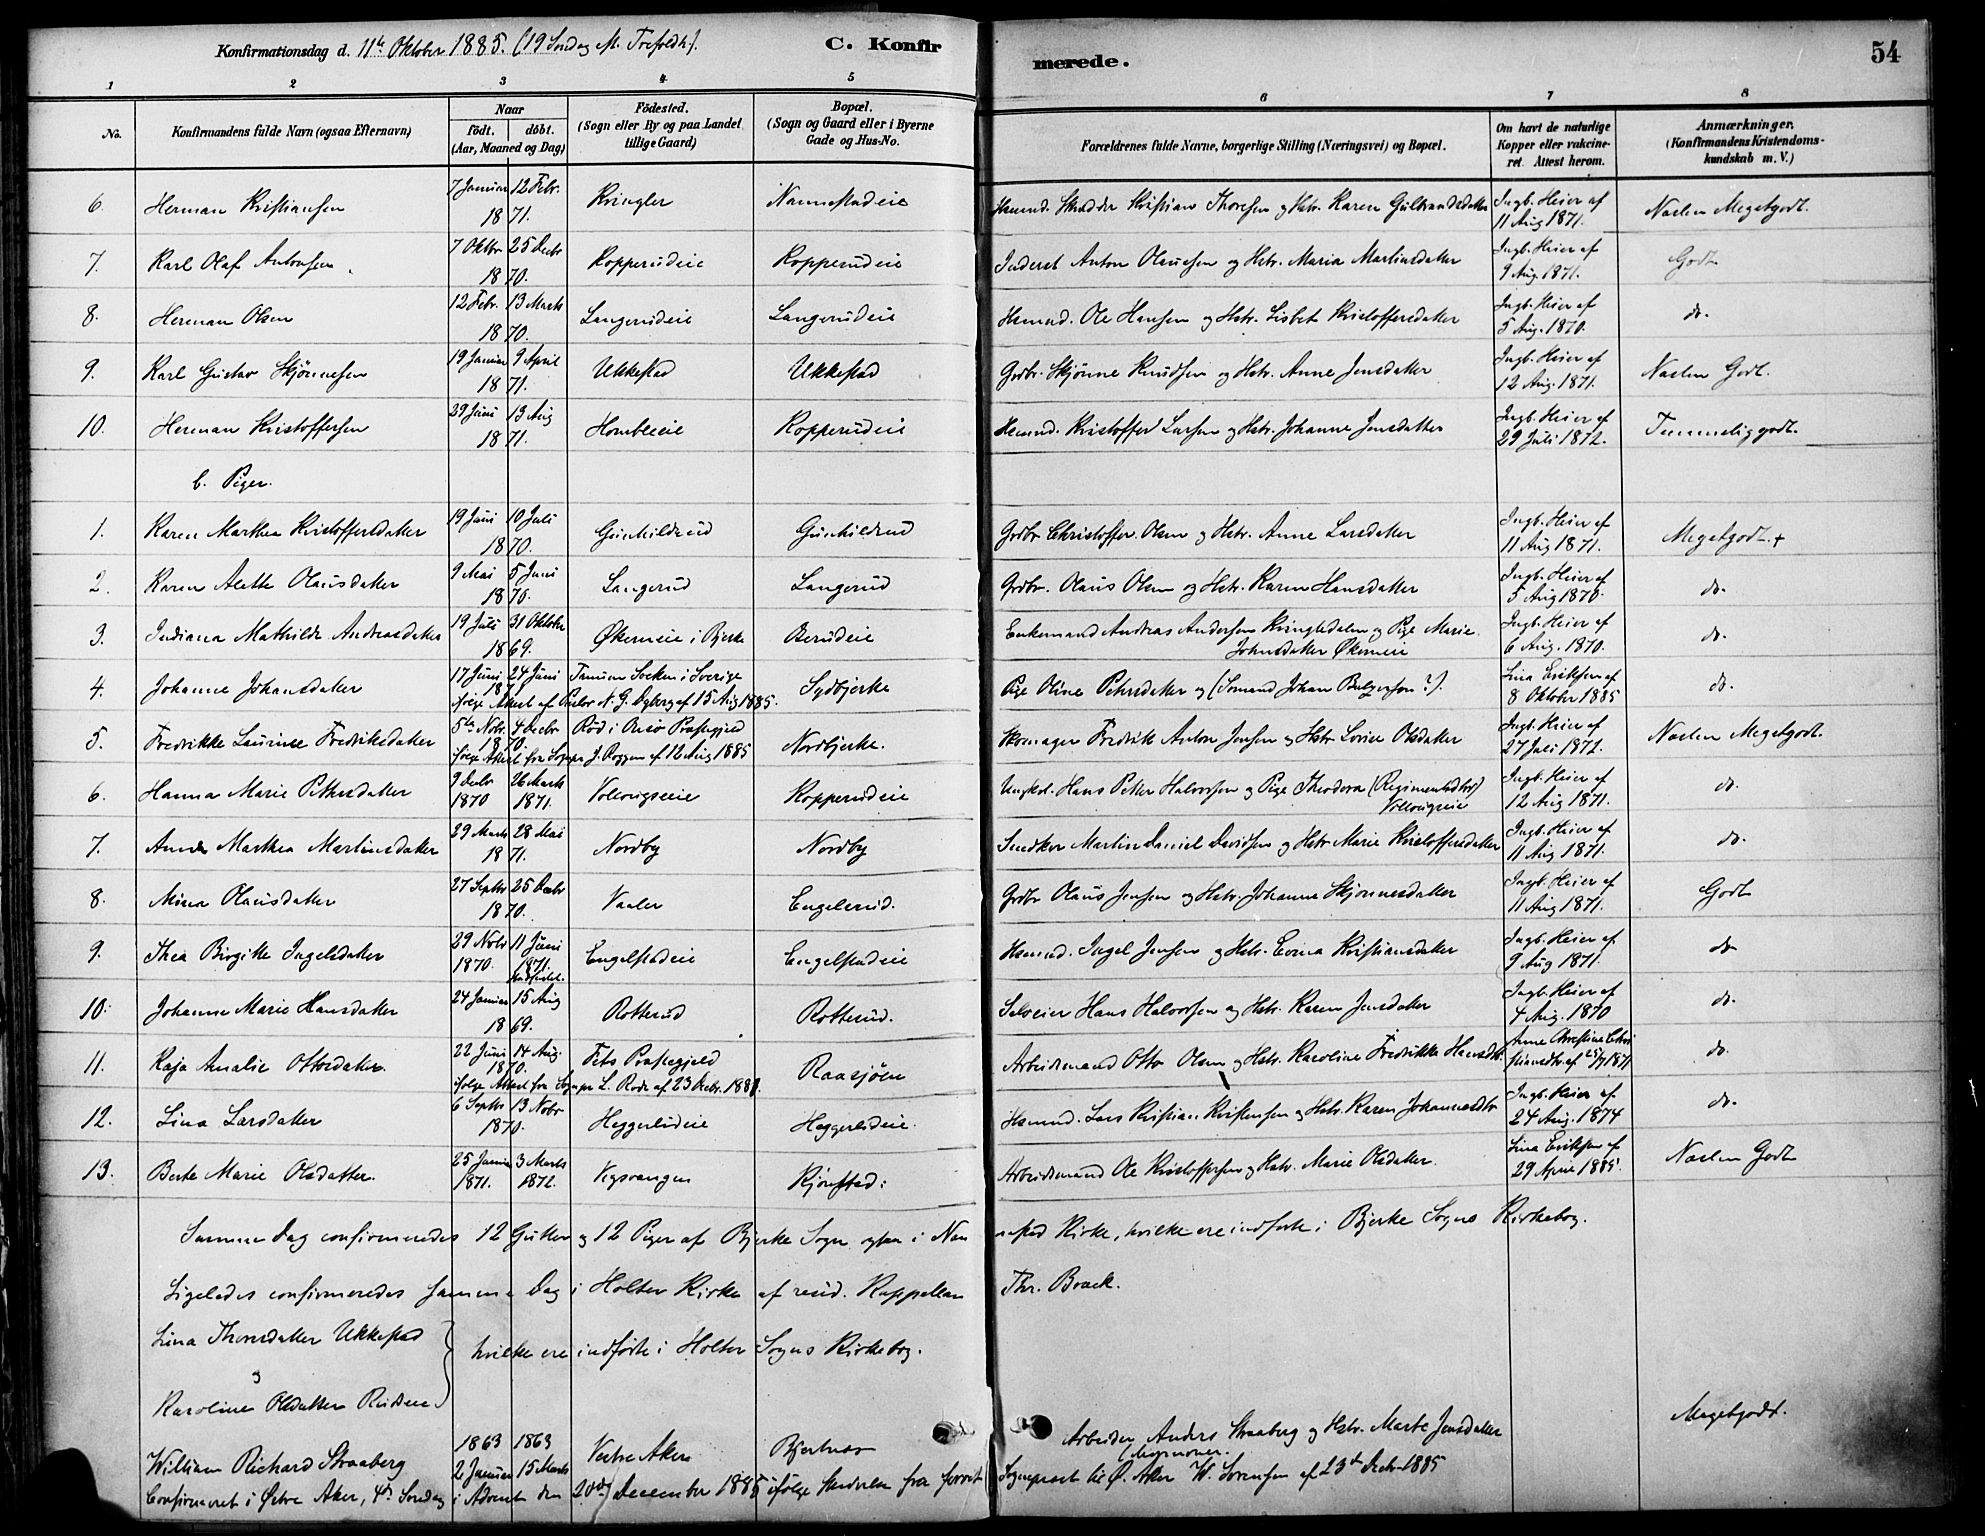 Konfirmationsdag d. 11te Oktober 1885. (19 Søndag M. Trefoldh).
C. Konfir
merede.
54
1 2 3 4 5 6 7 8
No.
Konfirmandens fulde Navn (ogsaa Efternavn)
Naar
födt. döbt.
(Aar, Maaned og Dag)
Födested.
(Sogn eller By og paa Landet
tillige Gaard)
Bopæl.
(Sogn og Gaard eller i Byerne
Gade og Hus-No.
Forældrenes fulde Navne, borgerlige Stilling (Næringsvei) og Bopæl.
Om havt de naturlige
Kopper eller vakcine-
ret. Attest herom.
Anmærkninger.
(Konfirmandens Kristendoms-
kundskab m. V.)
6. Herman Kristiansen 7 Januar 12 Febr. 1871. Kringler Nannestadeie Hsmnd. Skrædder Kristian Thoresen og Hstr. Karen Gulbrandsdatter Ingb. Heier af 11 Aug 1871. Næsten Megetgodt.
7. Karl Olaf Antonsen. 7 Oktbr 25 Decbr 1870. Kopperudeie Kopperudeie Inderst Anton Olausen og Hstr. Maria Martinsdatter Ingb. Heier af 9 Aug. 1871. Godt
8. Herman Olsen 12 Febr. 13 Marts 1870. Langerudeie Langerudeie Hsmnd. Ole Hansen og Hstr. Lisbet Kristoffersdatter Ingb. Heier af 5 Aug. 1870. do.
9. Karl Gustav Skjønnesen 19 Januar 9 April 1871. Ukkestad Ukkestad Grdbr. Skjønne Knudsen og Hstr. Anne Jensdatter Ingb. Heier af 12 Aug. 1871. Næsten Godt.
10. Herman Kristoffersen 29 Juni 13 Aug 1871. Hombleeie Kopperudeie Hsmnd. Kristoffer Larsen og Hstr. Johanne Jensdatter Ingb. Heier af 29 Juli 1872. Temmelig godt.
b. Piger.
1. Karen Marthea Kristoffersdatter 19 Juni 10 Juli 1870. Gunhildrud Gunhildrud Grdbr Christoffer Olsen og Hstr. Anne Larsdatter Ingb. Heier af 11 Aug 1871. Megetgodt.+
2. Karen Alette Olausdatter 9 Mai 5 Juni 1870. Langerud Langerud Grdbr. Olaus Olsen og Hstr. Karen Hansdatter Ingb. Heier af 5 Aug 1870. do.
3. Indiana Mathilde Andreasdatter 19 Juli 31 Oktober 1869. Økerneie i Bjerke Berudeie Enkemand Andreas Andersen Kringledalen og Pige Marie Johnsdatter Økerneie Ingb. Heier af 6 Aug. 1870. do.
4. Johanne Johansdatter 17 Juni 24 Juni Tanum Socken i Sverige
ifølge Attest af Pastor N. G. Dyberg af 15 Aug 1885. Sydbjerke Pige Oline Petersdatter og (Sømand Johan Bulgerson?). Lina Eriksen af 8 Oktober 1885 do.
5. Fredrikke Laurine Fredriksdatter 5te Novbr. 4 Decbr 1870. Rød i Onsø Præstegjeld
ifølge Attest fra Sognepr J. Roggen af 12 Aug 1885 Nordbjerke. Skomager Fredrik Anton Jensen og Hstr Lovise Olsdatter Ingb. Heier af 27 Juli 1872. Næsten Megetgodt.
6. Hanna Marie Pettersdatter 9 Decbr 1870 26 Marts 1871. Vollaugseie Kopperudeie Ungkarl. Hans Petter Halvorsen og Pige Theodora (Regimentsdtr) Vollaugseie Ingb. Heier af 12 Aug 1871. do.
7. Anne Marthea Martinsdatter 29 Marts 28 Mai 1871. Nordby Nordby Snedker Martin Daniel Davidsen og Hstr Marie Kristoffersdatter Ingb. Heier af 11 Aug 1871. do.
8. Mina Olausdatter 27 Septbr 25 Decbr 1870. Vaaler Engelsrud. Grdbr Olaus Jensen og Hstr. Johanne Skjønnesdatter Ingb. Heier af 11 Aug 1871. Godt
9. Thea Birgitte Ingelsdatter 29 Novbr 1870. 11 Juni 1871. Engelstadeie Engelstadeie Hsmnd. Ingel Jensen og Hstr. Evina Kristiansdatter Ingb. Heier af 9 Aug 1871. do
10. Johanne Marie Hansdatter 24 Januar 15 Aug 1869. Rotterud Rotterud. Selveier Hans Halvorsen og Hstr. Karen Jensdatter Ingb. Heier af 4 Aug. 1870 do.
11. Kaja Amalie Ottosdatter. 22 Juni 14 Aug. 1870. Fets Præstegjeld
ifølge Attest fra Sognepr L. Rode af 23 Decbr. 1881. Raasjøen Arbeidsmand Otto Olsen og Hstr. Karoline Fredrikke Hansdtr. Anne Christine Christiansdtr. af 25/7 1871 do.
12. Lina Larsdatter 6 Septbr 13 Novbr 1870. Heggerlideie Heggerlideie. Hsmnd. Lars Kristian Kristensen og Hstr. Karen Johannesdtr Ingb. Heier af 24 Aug. 1874 do.
13. Berte Marie Olsdatter. 25 Januar 1871. 3 Marts 1872. Vigsvangen Kjønstad: Arbeidsmand Ole Kristoffersen og Hstr. Marie Olsdatter. Lina Eriksen af 29 April 1885. Næsten Godt
Samme Dag confirmeredes 12 Gutter og 12 Piger af Bjerke Sogn ogsaa i Nannestad Kirke, hvilke ere indførte i Bjerke Sogns Kirkebog.
Ligeledes confirmeredes samme Dag i Holter Kirke af resid. Kappellan Thr. Broch.
Lina Thorsdatter Ukkestad
og
Karoline Olsdatter Rudsen
hvilke ere indførte i Holter Sogns Kirkebog.
William Richard Straaberg 1863 2 Januar 1863 15 Marts Vestre Aker Bjertnæs Arbeider Anders Straaberg og Hstr. Marte Jensdatter Megetgodt.
(Mormoner.
Confirmeret i Østre Aker, 4de Søndag i Advent den 20de December 1885 ifølge Skrivelse fra forret. Sognepræst til Ø. Aker W. Sørensen af 23de Decbr 1885